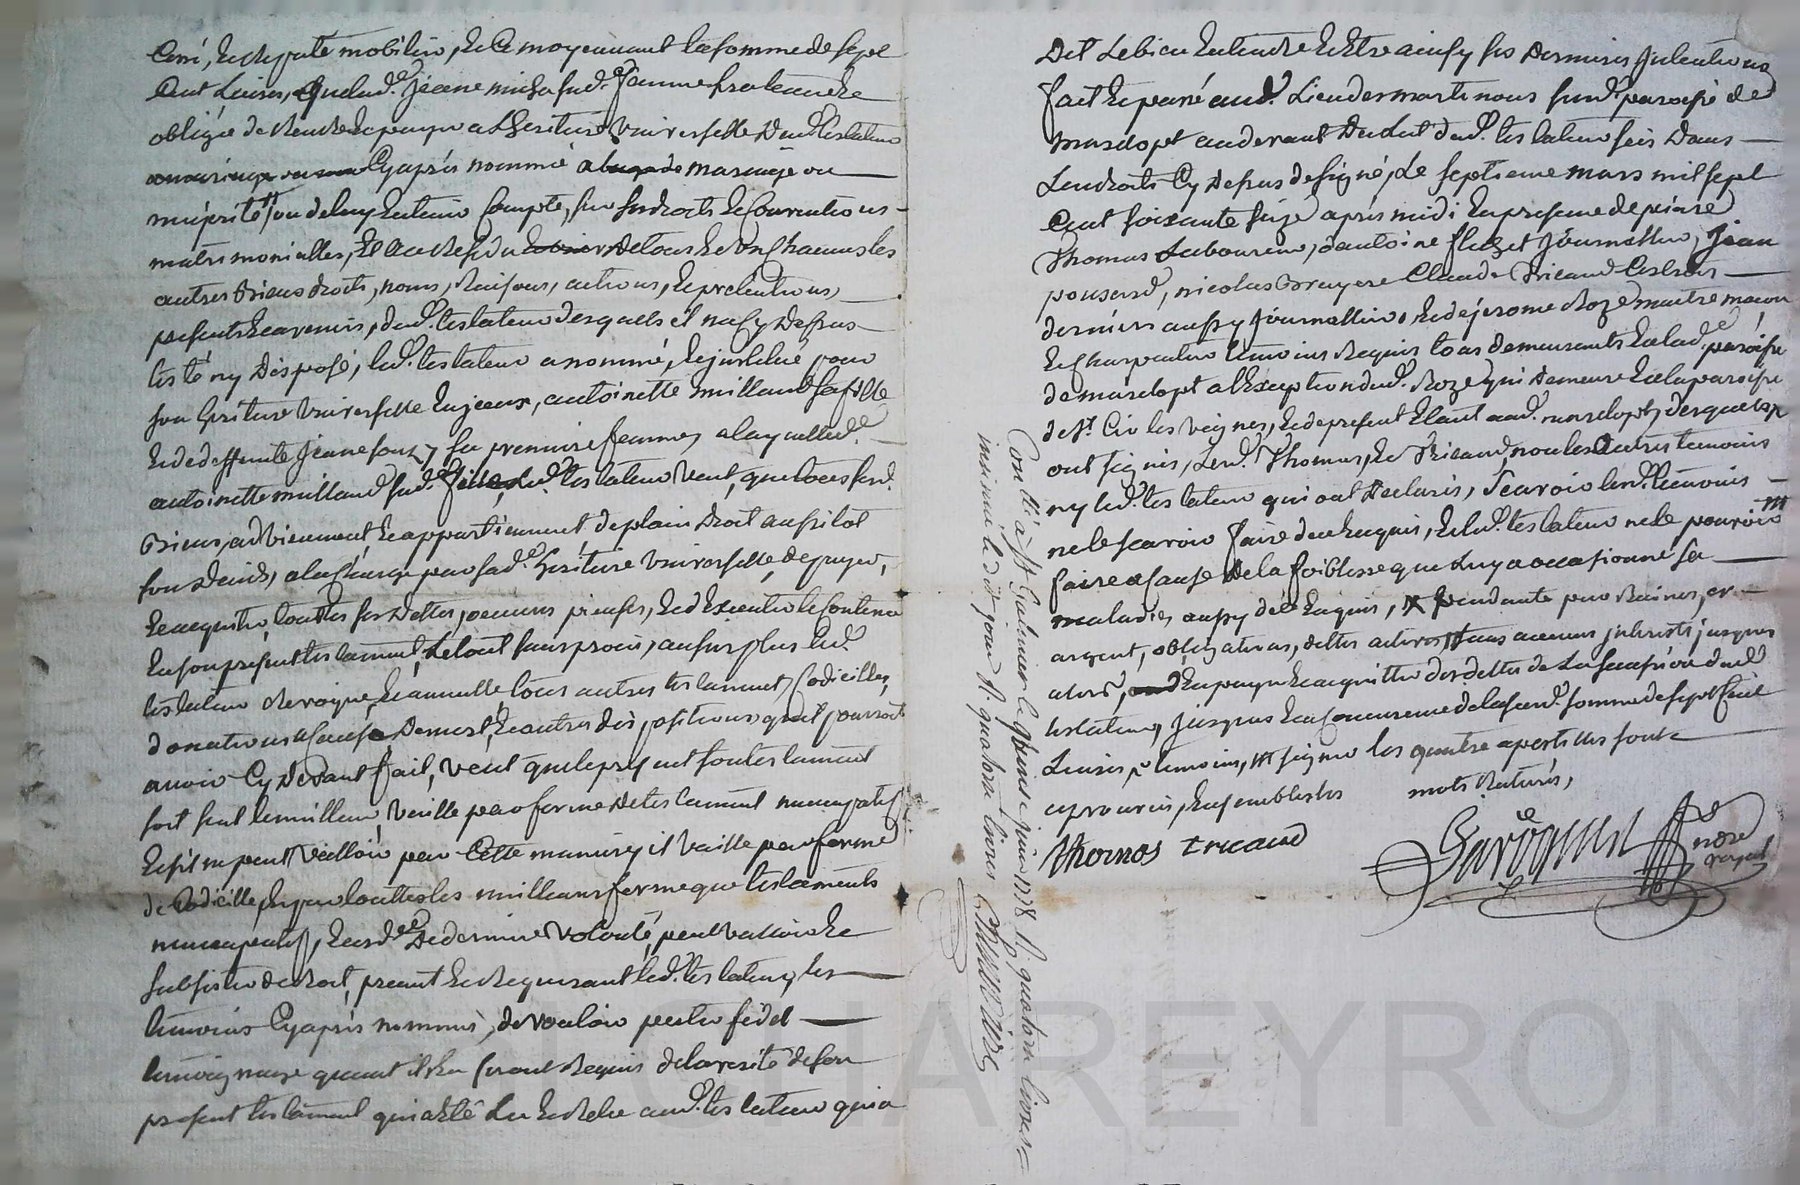 Ciré, et dequte mobilier, et Ce moyennant la somme de sept
Cent Livres, que lad.e Jeane sad.e femme sera tenue
obligée de rendre et payer a l'heritiere universelle dud.t testateur
Cy après nommée mariage ou
majorité, ou de luy en tenir Compte, sur ses droits et Conventions
matrimonialles, Et au Residu de tous et Un Chacuns les
autres Biens droits, noms, Raisons, actions, et prétentions,
presents et avenirs, dud.t testateur desquels il n'a Cy Dessus
testé ny Disposé, led.t testateur a nommé, et institué pour
son heritiere universelle antoinette millaud sa fille
et de deffunte Jeane sa premiere femme, a laquelle d.e
antoinette millaud sad.e fille led.t testateur veut, que tous sesd.
Biens, adviennent, et appartiennent de plain Droit aussitot
son deceds, a la Charge par sad.e heritiere universelle, de payer,
et acquitter toutes ses Dettes, oeuvres pieuses, et d'Executer le Contenu
En son present testament, Le tout sans procès, au surplus led.t
testateur revoque, et annulle tous autres testaments, Codicilles,
donations a Cause De mort, et autres dispositions qu'il pourroit
avoir Cy devant fait, veut que le present son testament
soit seul le meilleur, vaille par forme de testament nuncupatif
Et s'il ne peut valloir par Cette maniere, il vaille par forme
de Codicille, et par touttes les meilleures forme que testaments
nuncupatif, et ord.ce de derniere volonté, peut valloir et
subsister de droit, priant et Requerant led.t testateur, les
temoins Cy après nommés, de vouloir porter fidel
temoignage quant ils en seront Requis de la verité de son
present testament qui a eté Lu et Relu aud.t testateur qui a
Dit Le bien entendre et Etre ainsy ses Dernieres Intentions
fait et passé aud.t Lieu de susd.e paroisse de
marclopt au devant du Lit dud.t testateur sis Dans
L'endroit Cy Dessus designé, Le septieme mars mil sept
Cent soixante seize après midi En presence de pierre
Thomas Laboureur, d'antoine journallier, Jean
nicolas Bruyere Claude Tricaud Ces trois
derniers aussy Journalliers et de jerome Roze maitre macon
et Charpentier temoins Requis tous demeurants En lad.e paroisse
de marclopt a l'Exception dud.t Roze qui Demeure En la paroisse
de S.t Cir les vignes, et de present Etant aud.t marclopt, desquels
ont signés, Lesd.t Thomas, et Tricaud, non les autres temoins
ny led.t testateur qui ont declarés, Scavoir lesd.t temoins
ne le scavoir faire de ce Enquis, et led.t testateur ne le pouvoir
faire a Cause de la foiblesse que Luy a occasionné sa
maladie, aussy de ce Enquis,
argent, obligations, dettes actives, sans aucuns interets jusques
alors, Et payer et acquitter des dettes de La succession dud.t
testateur, jusques En Concurrence de lasusd.e somme de sept Cent
Livres temoins, signer les quatre apostilles sont
aprouvés, Ensemble les mots Raturés,
Thomas tricaud
no.re
royal
Con.llé à S.t Galmier le quinze juin 1778 R. quatorze livres
insinué le dit jour R. quatorze livres
CHAREYRON